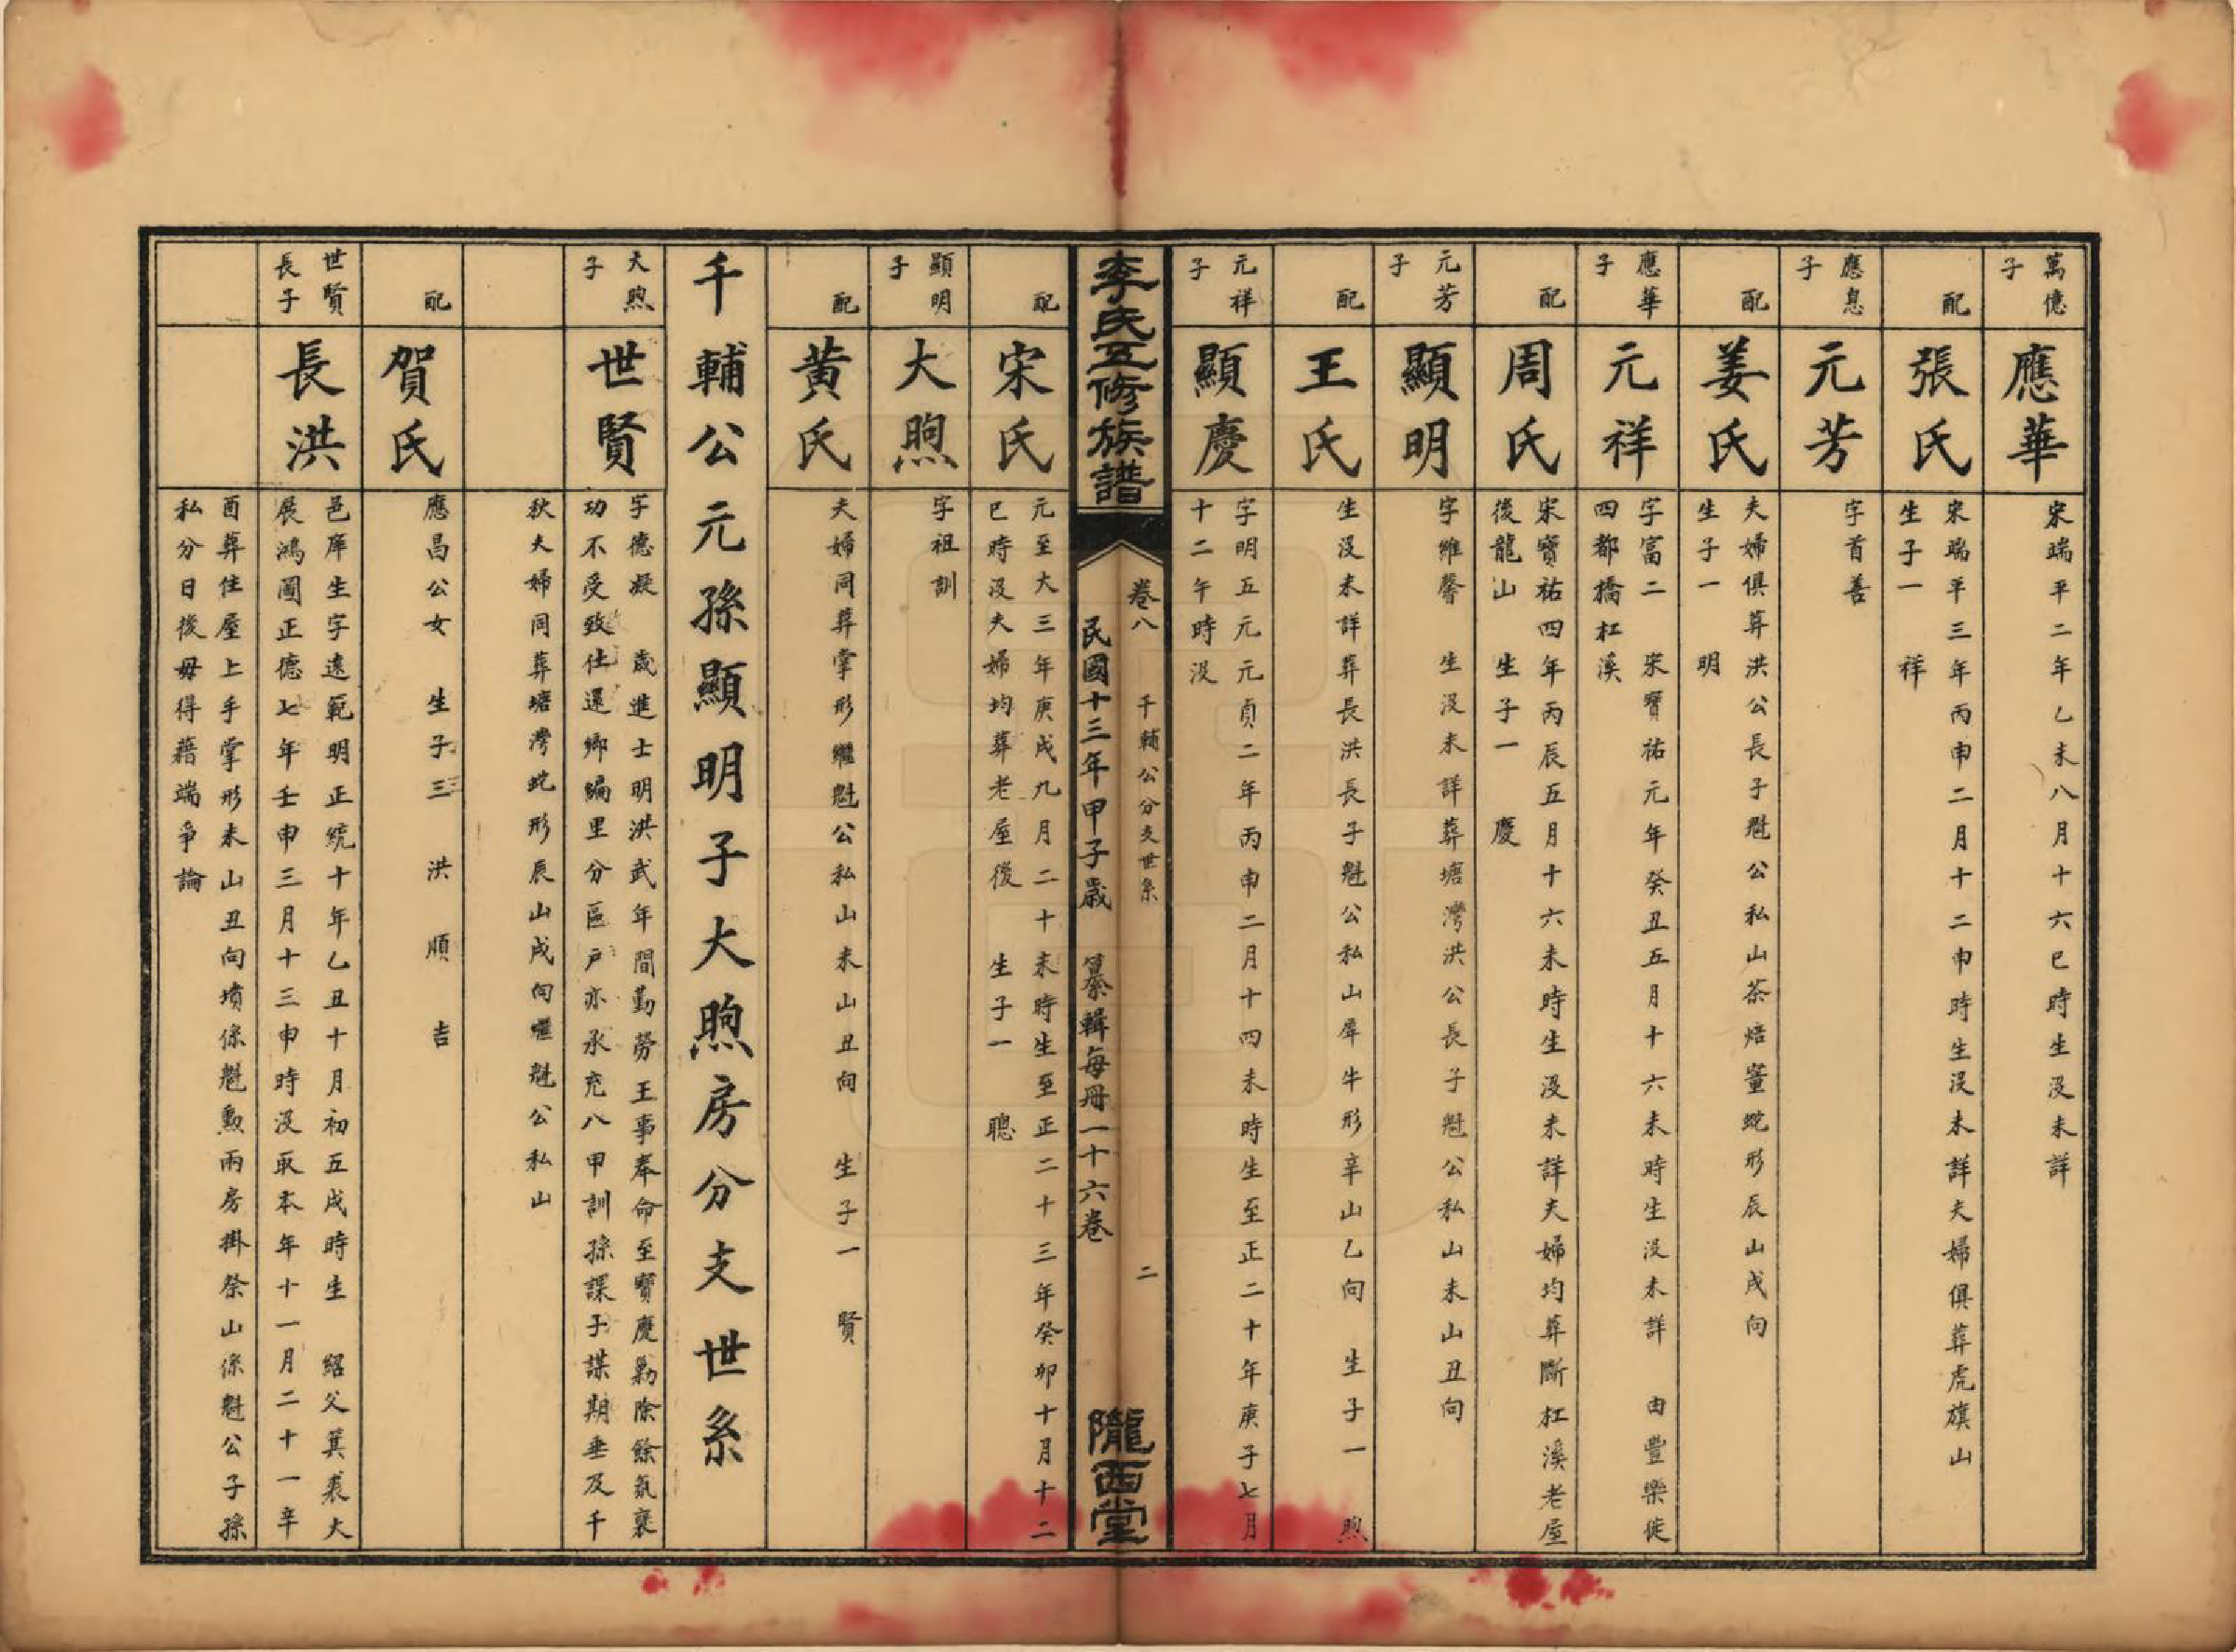 萬億子
應華
宋端平二年乙未八月十六巳時生沒未詳
配
張氏
宋端平三年丙申二月十二申時生沒未詳夫婦俱葬虎旗山
生子一　祥
應息子
元芳
字首善
配
姜氏
夫婦俱葬洪公長子魁公私山茶焙窰蛇形辰山戌向
生子一　明
應華子
元祥
字富二　宋寶祐元年癸丑五月十六未時生沒未詳　由豐樂徙
四都橋杠溪
配
周氏
宋寶祐四年丙辰五月十六未時生沒未詳夫婦均葬斷杠溪老屋
後龍山　生子一　慶
元芳子
顯明
字維馨　生沒未詳葬塘灣洪公長子魁公私山未山丑向
配
王氏
生沒未詳葬長洪長子魁公私山犀牛形辛山乙向　生子一　煦
元祥子
顯慶
字明五元元貞二年丙申二月十四未時生至正二十年庚子七月
十二午時沒
李氏五修族譜
卷八　千輔公分支世系　二
民國十三年甲子歲　纂輯每冊一十六卷
隴西堂
配
宋氏
元至大三年庚戌九月二十未時生至正二十三年癸卯十月十二
巳時沒夫婦均葬老屋後　生子一　聰
顯明子
大煦
字祖訓
配
黃氏
夫婦同葬掌形繼魁公私山未山丑向　生子一　賢
千輔公元孫顯明子大煦房分支世系
大煦子
世賢
字德凝　歲進士明洪武年間勤勞王事奉命至寶慶勦除餘氛褒
功不受致仕還鄉編里分區戶亦承充八甲訓孫課子謀期垂及千
秋夫婦同葬塘灣蛇形辰山戌向繼魁公私山
配
賀氏
應昌公女　生子三　洪　順　吉
世賢長子
長洪
邑庠生字遠範明正統十年乙丑十月初五戌時生　紹父箕裘大
展鴻圖正德七年壬申三月十三申時沒取本年十一月二十一辛
酉葬住屋上手掌形未山丑向墳係魁勲兩房掛祭山係魁公子孫
私分日後毋得藉端爭論